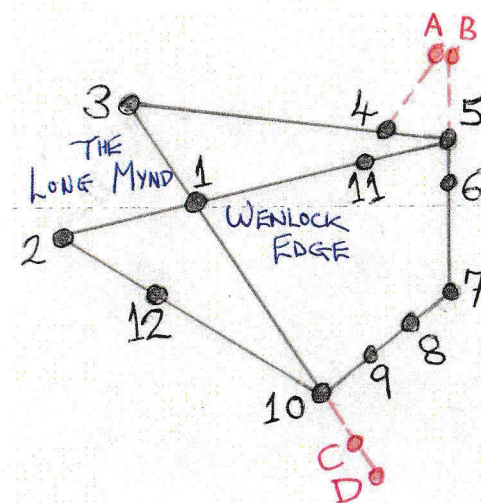 A B
3
4
5
THE
LONG MYND
1
11
6
WENLOCK
EDGE
2
12
7
8
9
10
C
D